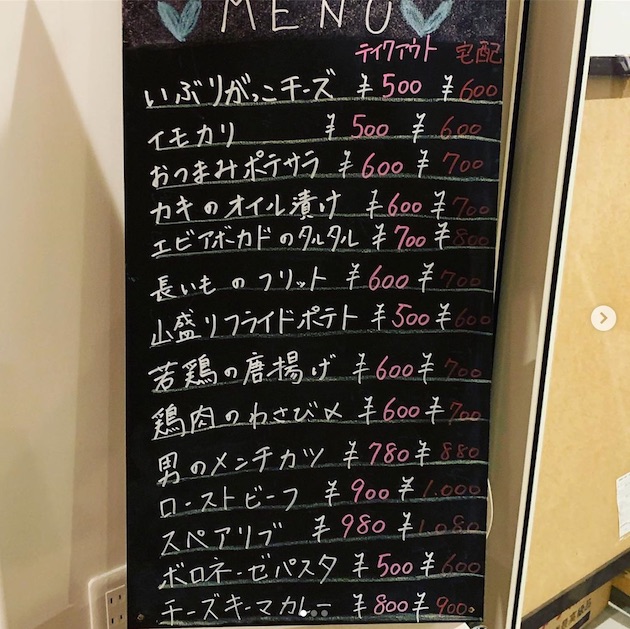 MENU
テイクアウト 宅配
いぶりがっこチーズ ¥500 ¥600
イモカリ ¥500 ¥600
おつまみポテサラ ¥600 ¥700
カキのオイル漬け ¥600 ¥700
エビアボカドのタルタル ¥700 ¥800
長いものフリット ¥600 ¥700
山盛りフライドポテト ¥500 ¥600
若鶏の唐揚げ ¥600 ¥700
鶏肉のわさび〆 ¥600 ¥700
男のメンチカツ ¥780 ¥880
ローストビーフ ¥900 ¥1.000
スペアリブ ¥980 ¥1.080
ボロネーゼパスタ ¥500 ¥600
チーズキーマカレー ¥800 ¥900